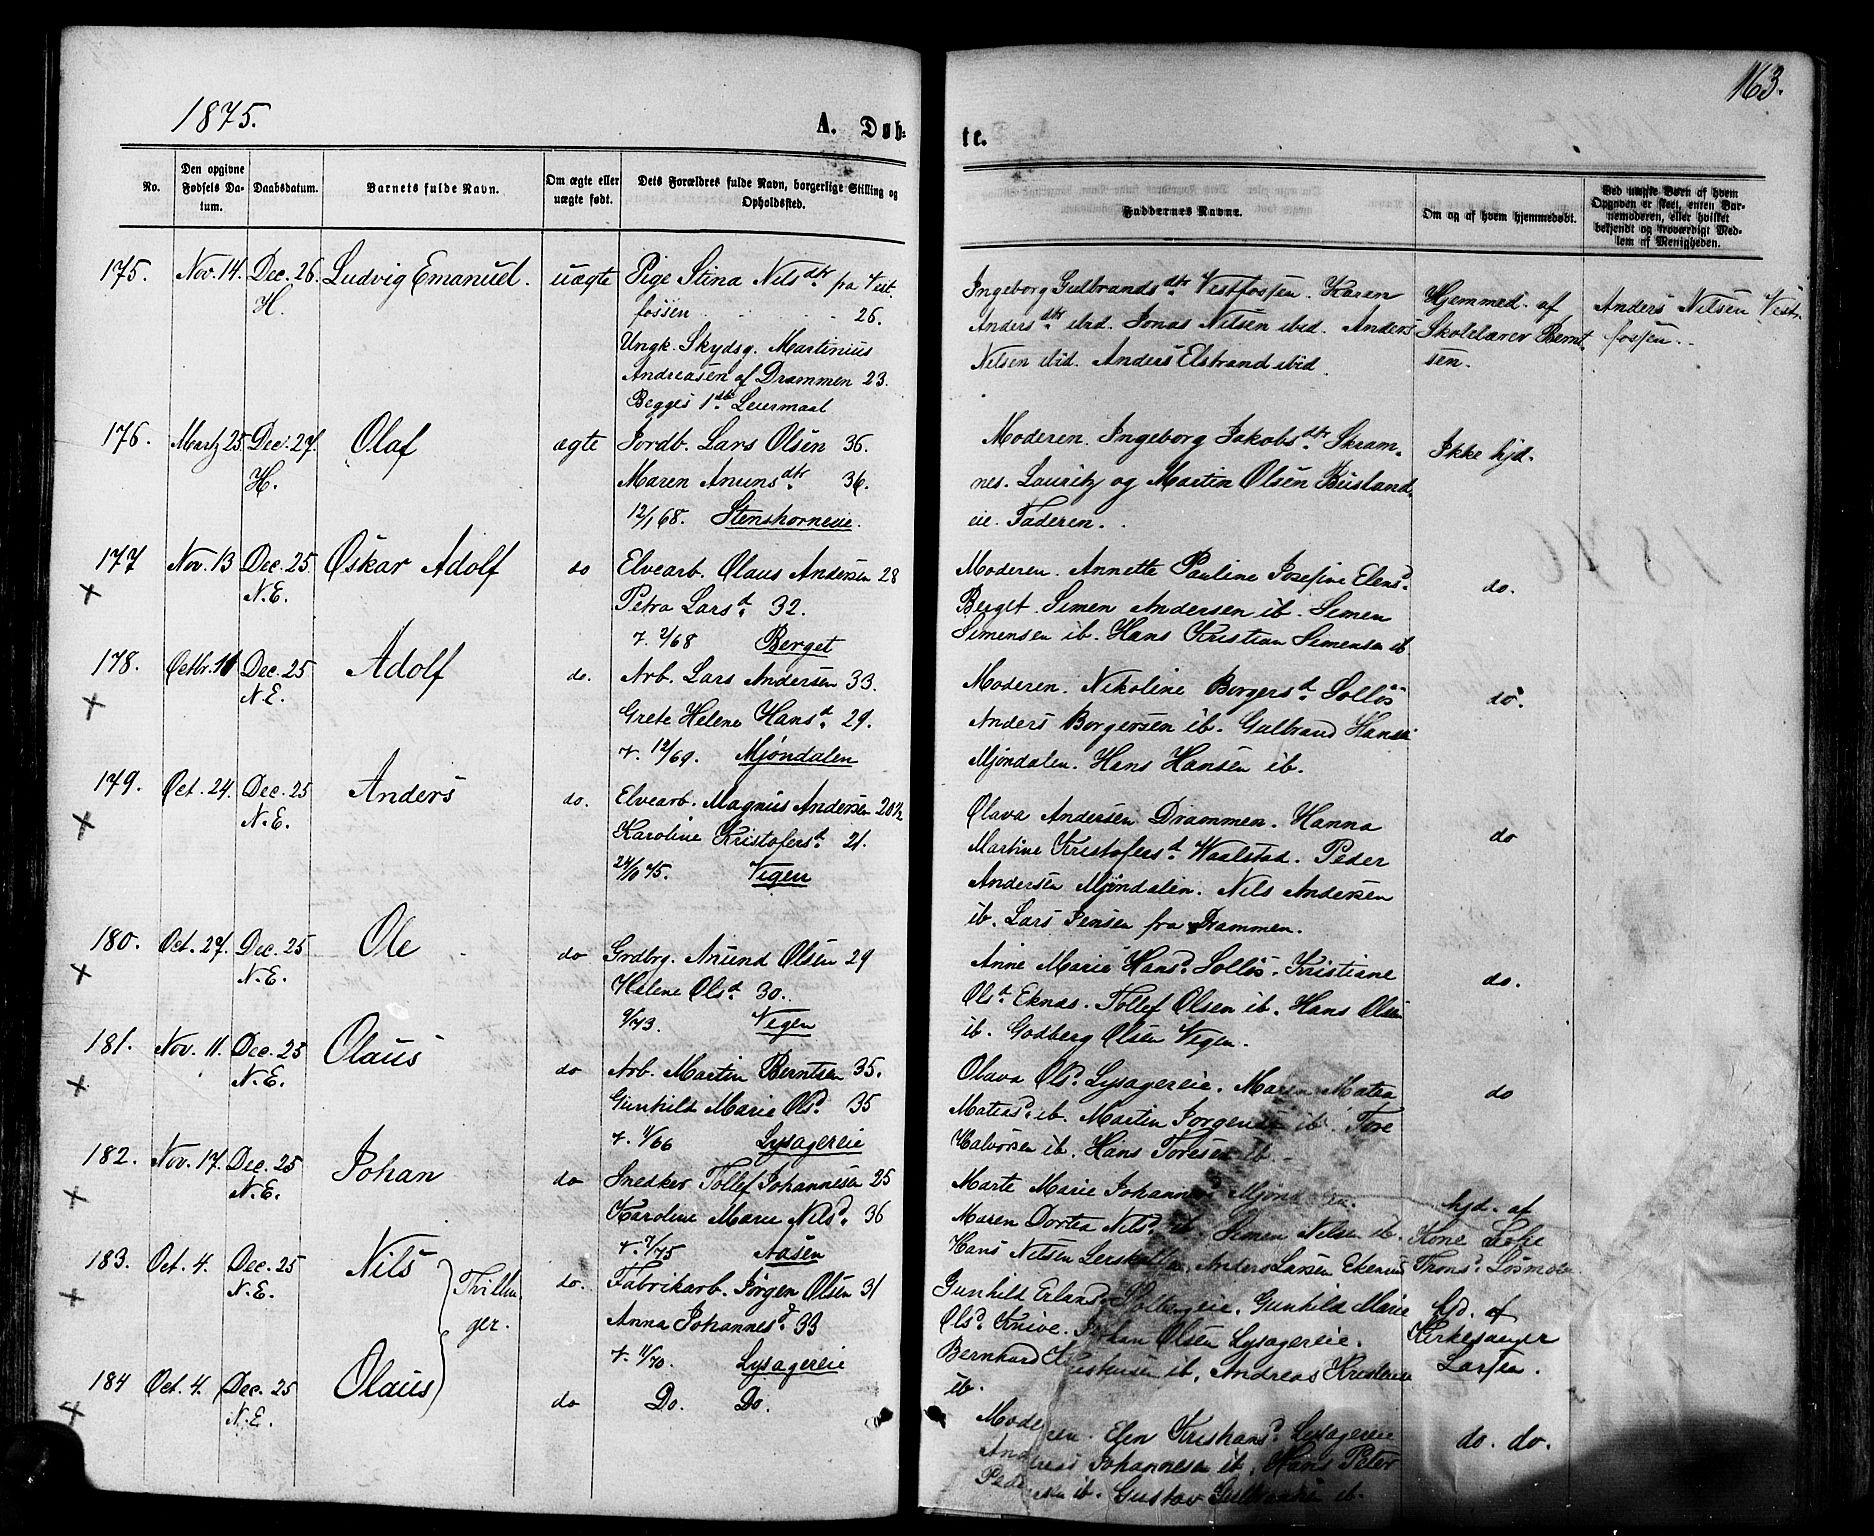 1875.
A. Døb-
No.
Den opgivne Fødsels Da-tum.
Daabsdatum.
Barnets fulde Navn.
Om ægte eller uægte født.
Dets Forældres fulde Navn, borgerlige Stilling og Opholdssted.
175. Nov. 14. Dec. 26. Ludvig Emanuel. uægte Pige Stina Nilsdtr fra Vest-
H. fossen 26.
Ungk. Skydsg. Martinius
Andreasen af Drammen 23.
Begges 1ste Leiermaal
176. Martz 25 Dec. 27. Olaf ægte Jordb. Lars Olsen 36.
H. Maren Anunsdtr 36.
12/1 68. Stenshorneie.
177 Nov. 13 Dec. 25 Oskar Adolf do Elvearb. Olaus Andersen 28
+ N.E. Petra Larsd. 32.
v. 2/68 Berget
178. Octbr. 11 Dec. 25 Adolf do. Arb. Lars Andersen 33.
+ N.E. Grete Helene Hansd. 29.
v. 12/69. Mjøndalen
179. Oct. 24. Dec. 25 Anders do. Elvearb. Magnus Andersen 20½
+ N.E. Karoline Kristofersd. 21.
75. Vegen
180. Oct. 27. Dec. 25 Ole do Grdbrg. Anund Olsen 29
+ N.E. Helene Olsd. 30.
9/73. Vegen
181. Nov. 11. Dec. 25 Olaus do Arb. Martin Berntsen 35.
+ N.E. Gunhild Marie Olsd. 35
v. 11/66 Lysagereie
182. Nov. 17. Dec. 25 Johan do Snedker Tollef Johannesen 25
+ N.E. Karoline Marie Nilsd. 36
v. 7/75 Aasen
183. Oct. 4. Dec. 25 Nils Tvillin- do. Fabrikarb. Jørgen Olsen 31
+ N.E. ger. Anna Johannesd. 33
v. 11/70. Lysagereie
184 Oct. 4. Dec. 25 Olaus do Do. Do.
+ N.E.
163.
te.
Faddernes Navne.
Om og af hvem hjemmedøbt.
Ved uægte Børn af hvem Opgaven er skeet, enten Bar-nemoderen, eller hvilket bekjendt og troværdigt Med-lem af Menigheden.
Ingeborg Gulbrandsdtr Vestfossen. Karen Hjemmed. af Anders Nilsen Vest-
Andersdtr ibid. Jonas Nilsen ibid. Anders Skolelærer Bernt- fossen.
Nilsen ibid. Anders Elstrand ibid. sen.
Moderen. Ingeborg Jakobsdtr Skram- Ikke hjd.
nes. Lauritz og Martin Olsen Busland-
eie. Faderen.
Moderen. Annette Pauline Josefine Elensd. do.
Berget. Simen Andersen ib. Simen
Simensen ib. Hans Kristian Simensen ib
Moderen. Nikoline Borgersd. Solløs do.
Anders Borgersen ib. Gulbrand Hansen
Mjøndalen. Hans Hansen ib.
Olava Andersen Drammen. Hanna do
Martine Kristofersd. Waalstad. Peder
Andersen Mjøndalen. Nils Andersen
ib. Lars Jensen fra Drammen.
Anne Marie Hansd. Solløs. Kristiane do.
Olsd. Eknes. Tollef Olsen ib. Hans Olsen
ib. Godberg Olsen Vegen.
Olava Olsd. Lysagereie. Maren Matea do
Matiasd. ib. Martin Jorgensen ib. Tore
Halvorsen ib. Hans Toresen ib.
Marte Marie Johannes Mjøndalen. hjd. af
Maren Dortea Nilsd. ib. Simen Nilsen ib. Kone
Hans Nilsen Anders Larsen Trons.
Gunhild Gunhild Marie hjd. af
Olsd. Knive. Johan Olsen Lysagereie. Kirkesanger
Bernhard ib. Andreas Larsen.
ib.
Moderen. Elen Kristiansd. Lysagereie do. do.
Andreas Johannesen ib. Hans Peter
ib. Gustav ib.